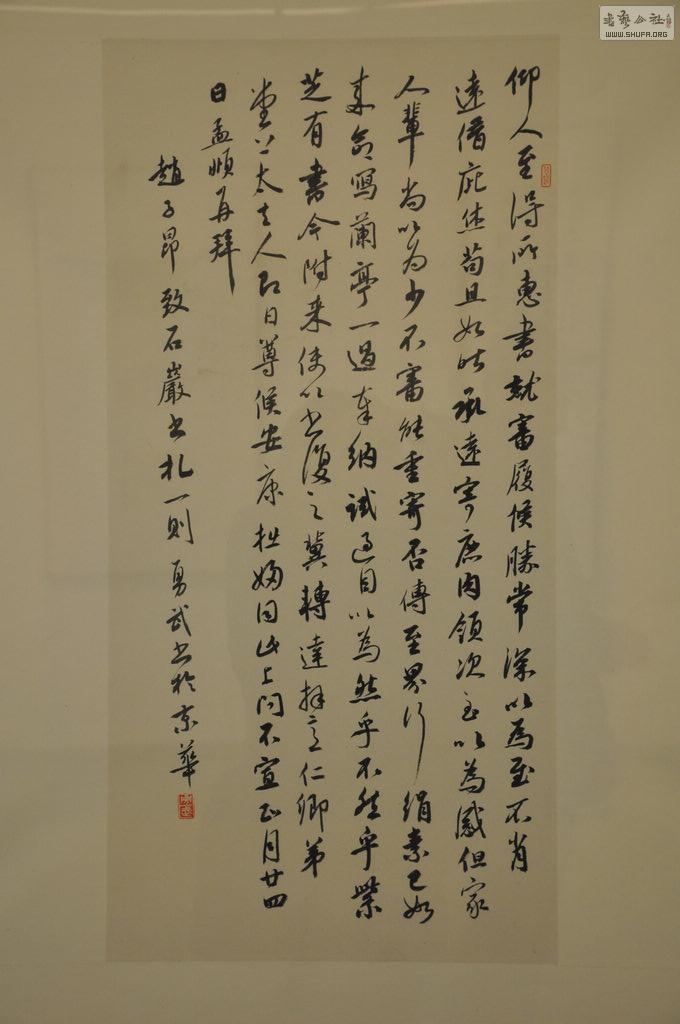 仰人至得所惠书就審履候勝常深以為慰不肖
遠借庇焦苟且如昨承遠寄鹿肉領次至以為感但家
人輩尚以为少不審能重寄否傳至界行絹素已如
来命寫蘭亭一過奉納試過目以為然乎不然乎紫
芝有書今附来使以书復之冀轉達拜意仁卿弟
堂上太夫人即日尊候安康拙婦同此上問不宣正月廿四
日孟頫再拜
趙子昂致石巖书札一則勇武书於京華
書藝公社
WWW.SHUFA.ORG